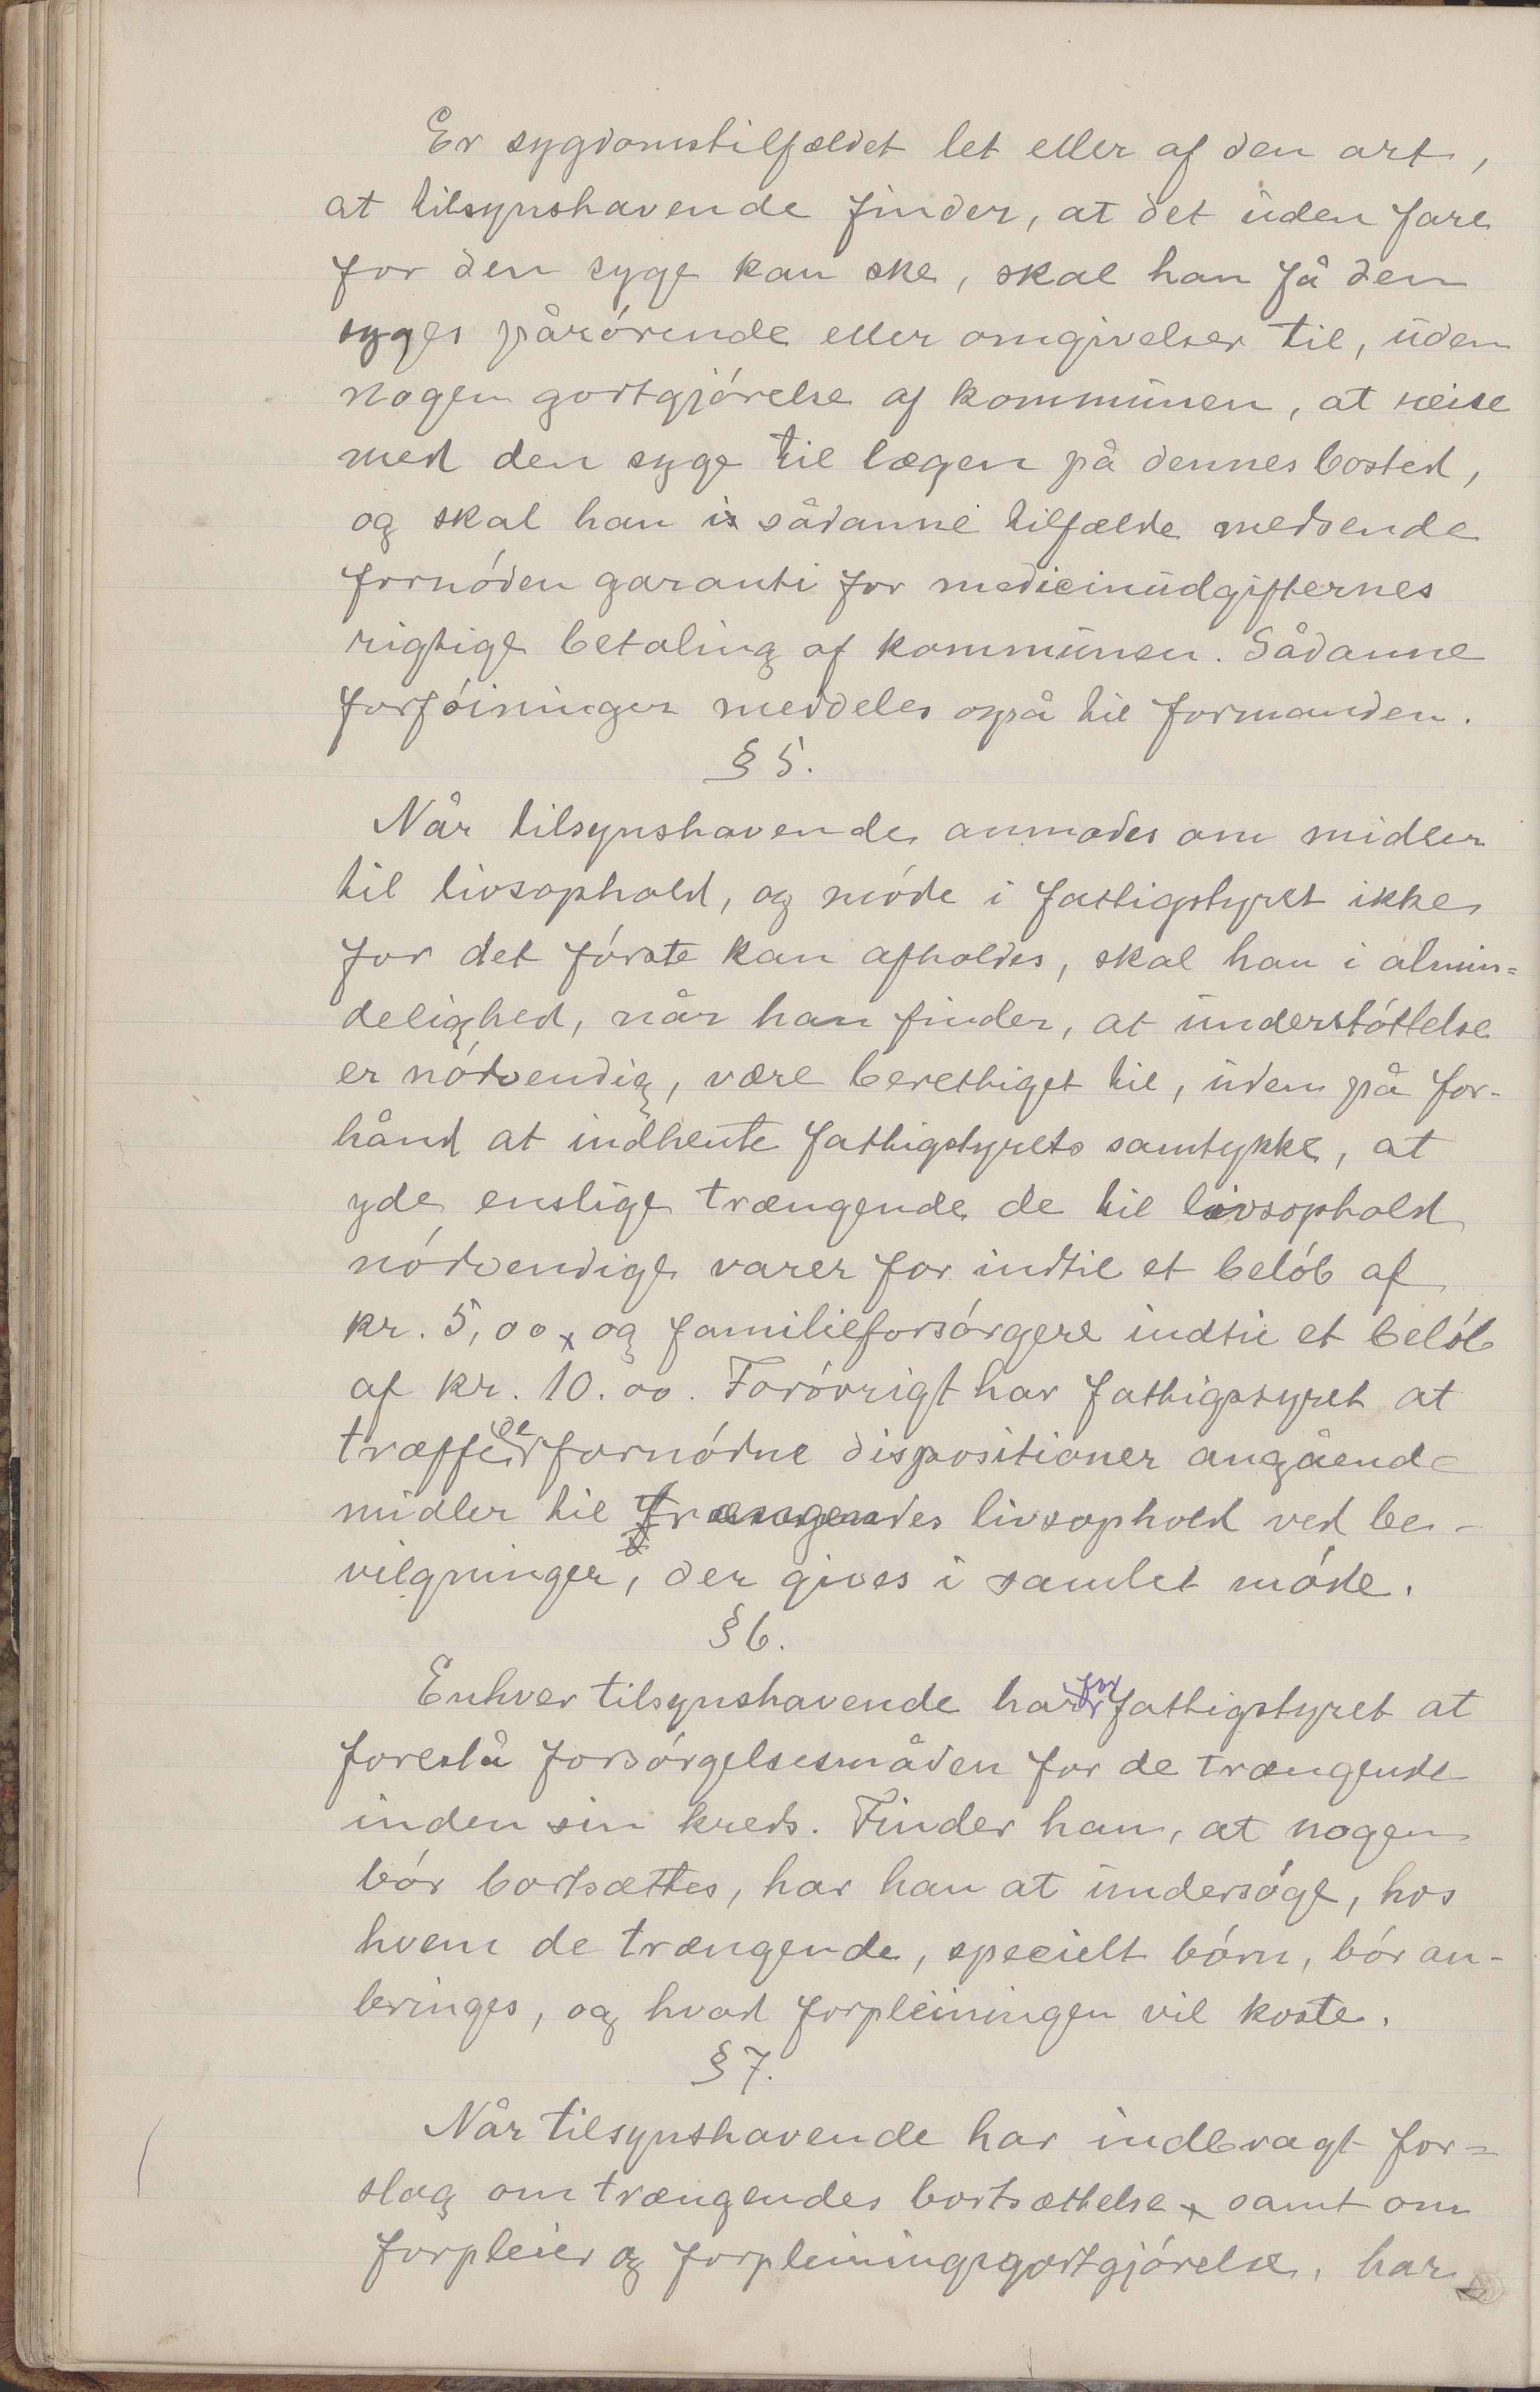 Er sygdomstilfældet let eller af den art,
at tilsynshavende finder, at det uden fare
for den syge kan ske, skal han få den
syges pårórende eller omgivelser til, uden
nogen godtgjórelse af kommunen, at reise
med den syge til lægen på dennes bosted,
og skal han i sådanne tilfælde medsende
fornóden garanti for medicinudgifternes
rigtige betaling af kommunen. Sådanne
forfóininger meddeles også til formanden.
§ 5.
Når tilsynshavende anmodes om midler
til livsophold, og móde i fattigstyret ikke
for det fórste kan afholdes, skal han i almin=
delighed, når han finder, at understóttelse
er nódvendig, være berettiget til, uden på for-
hånd at indhente fattigstyrets samtykke, at
yde enslige trængende de til livsophold
nódvendige varer for indtil et belób af
kr. 5,00 og familieforsórgere indtil et belób
af kr. 10.00. Foróvrigt har fattigstyret at
træffe de fornódne dispositioner angående
midler til trængendes livsophold ved be-
vilgninger, der gives i samlet móde.
§ 6.
Enhver tilsynshavende har for fattigstyret at
foreslå forsórgelsesmåden for de trængende
inden sin kreds. Finder han, at nogen
bór bortsættes, har han at undersóge, hos
hvem de trængende, specielt bórn, bór an-
bringes, og hvad forpleiningen vil koste.
§ 7.
Når tilsynshavende har indbragt for=
slag om trængendes bortsættelse samt om
forpleier og forpleiningsgodtgjórelse, har